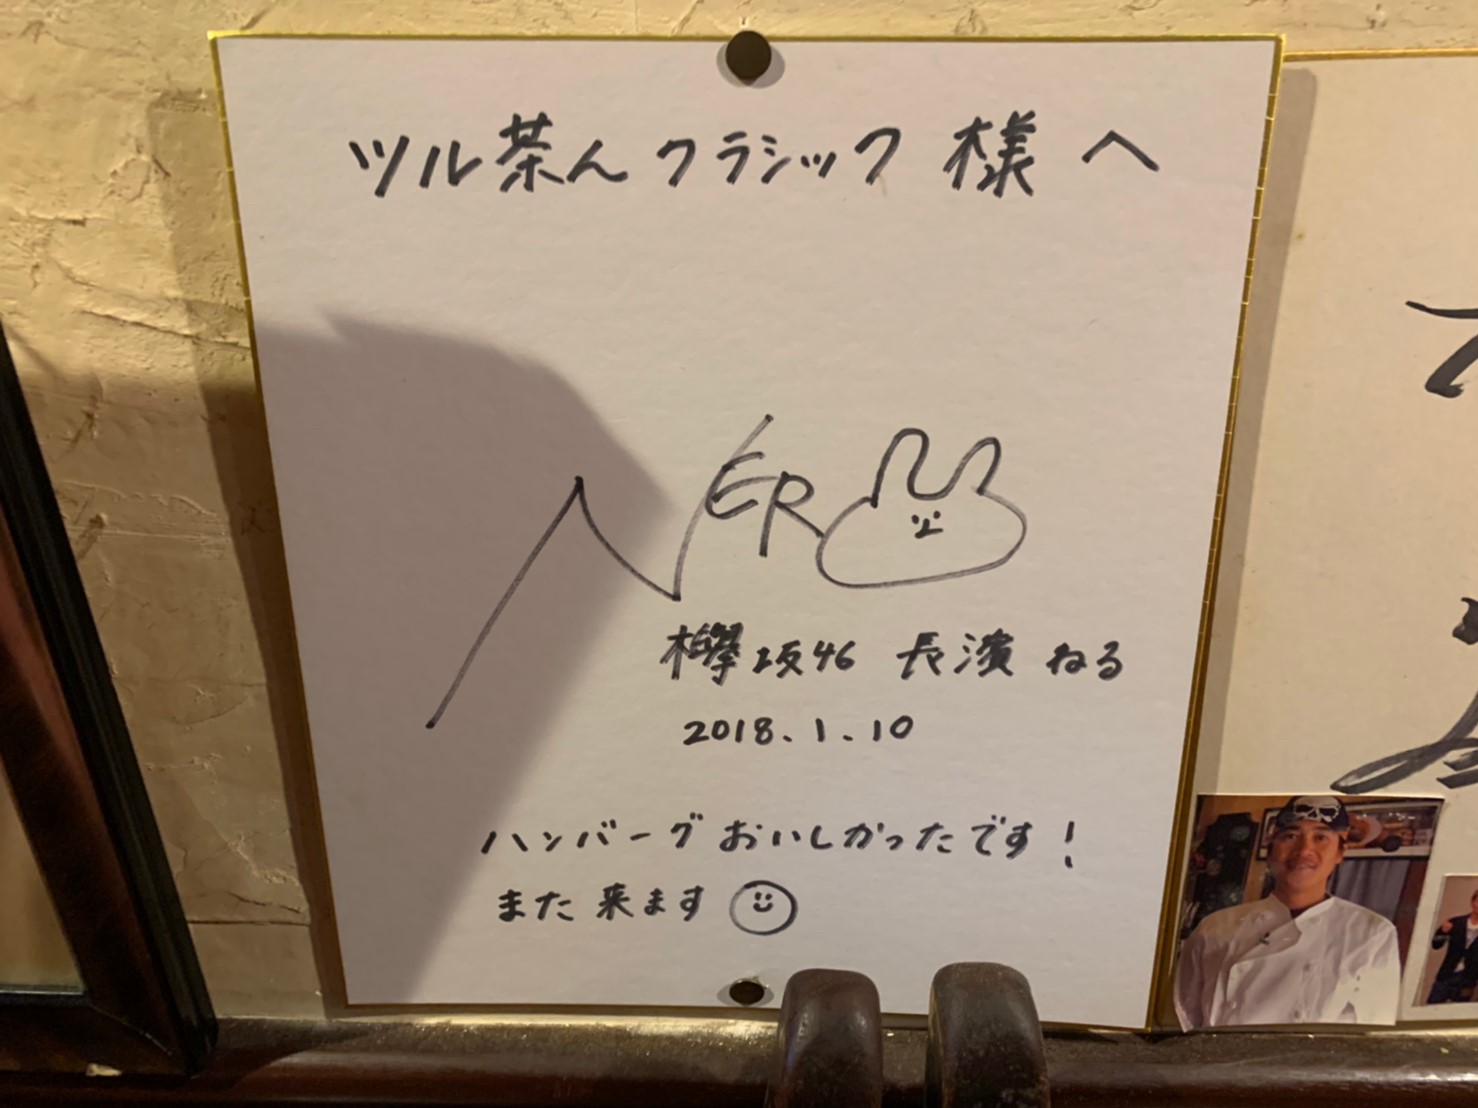 ツル茶んクラシック 様 へ
NER
欅坂46 長濱 ねる
2018.1.10
ハンバーグ おいしかったです!
また 来ます